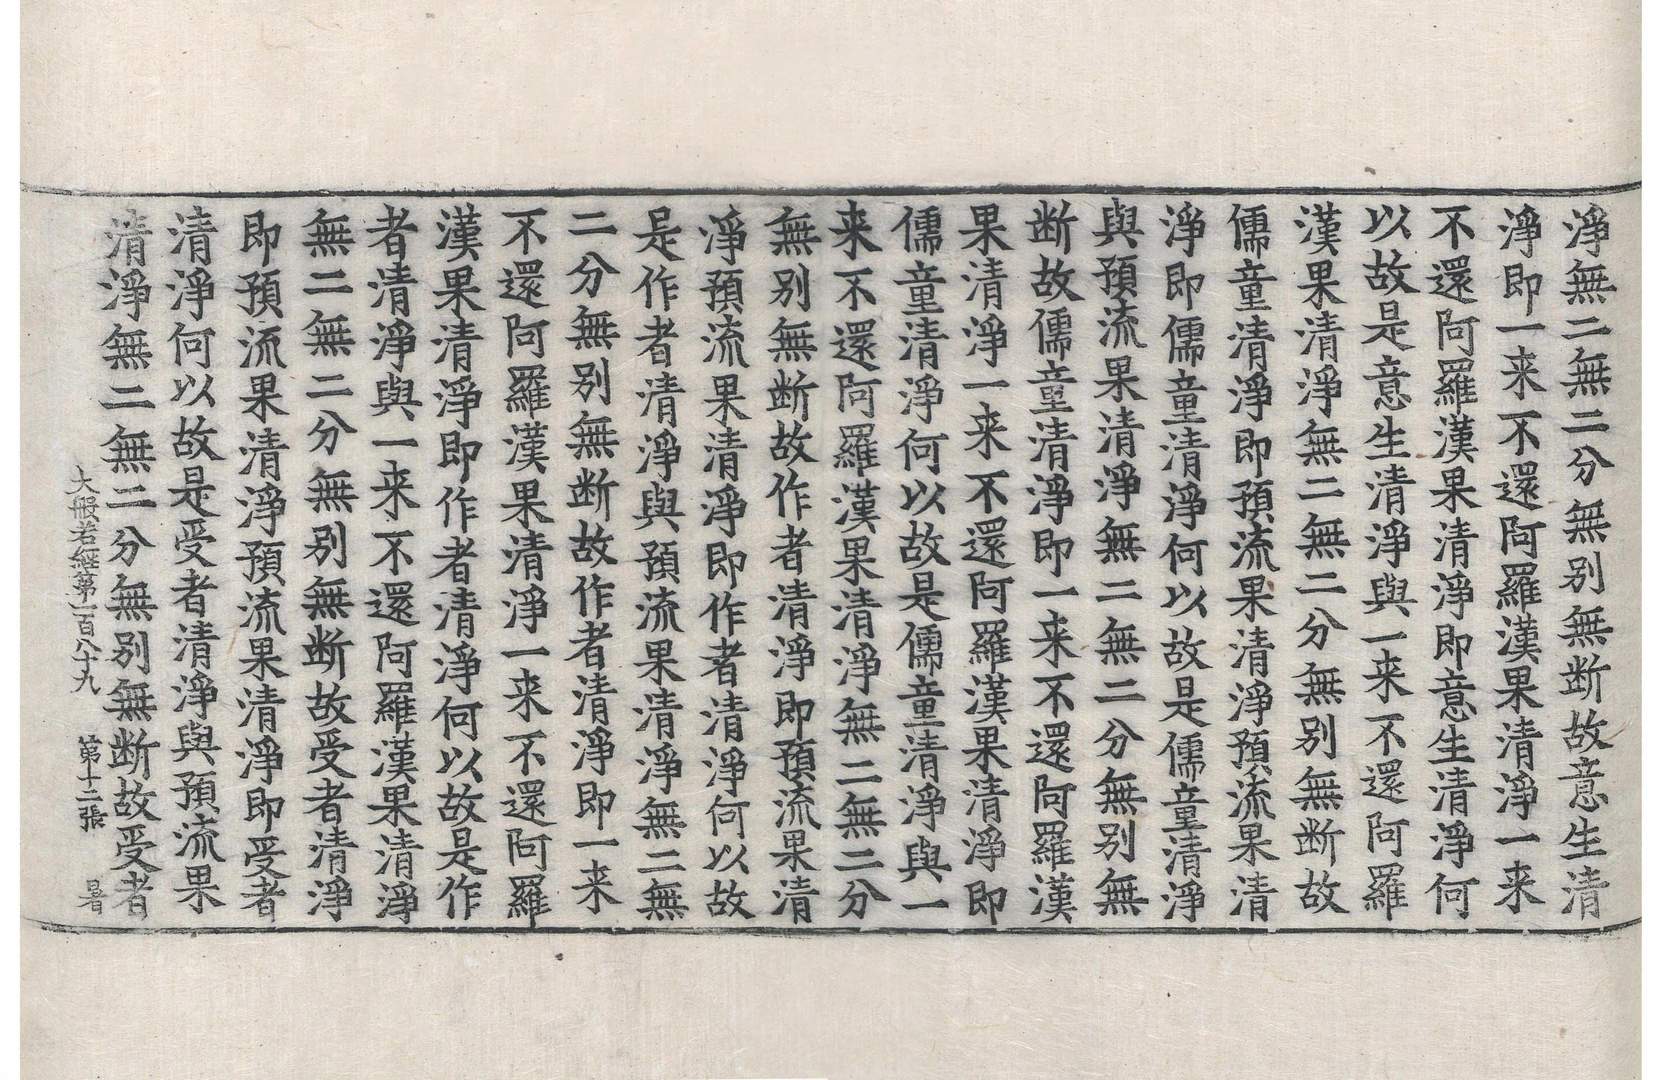 淨無二無二分無別無断故意生清
淨即一来不還阿羅漢果清淨一来
不還阿羅漢果清淨即意生清淨何
以故是意生清淨與一来不還阿羅
漢果清淨無二無二分無別無断故
儒童清淨即預流果清淨預流果清
淨即儒童清淨何以故是儒童清淨
與預流果清淨無二無二分無別無
断故儒童清淨即一来不還阿羅漢
果清淨一来不還阿羅漢果清淨即
儒童清淨何以故是儒童清淨與一
来不還阿羅漢果清淨無二無二分
無別無断故作者清淨即預流果清
淨預流果清淨即作者清淨何以故
是作者清淨與預流果清淨無二無
二分無別無断故作者清淨即一来
不還阿羅漢果清淨一来不還阿羅
漢果清淨即作者清淨何以故是作
者清淨與一来不還阿羅漢果清淨
無二無二分無別無断故受者清淨
即預流果清淨預流果清淨即受者
清淨何以故是受者清淨與預流果
清淨無二無二分無別無断故受者
大般若經第一百八十九 第十二張 暑